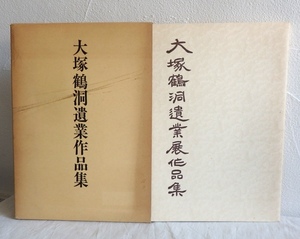 大塚鶴洞遺業作品集
大塚鶴洞遺業展作品集